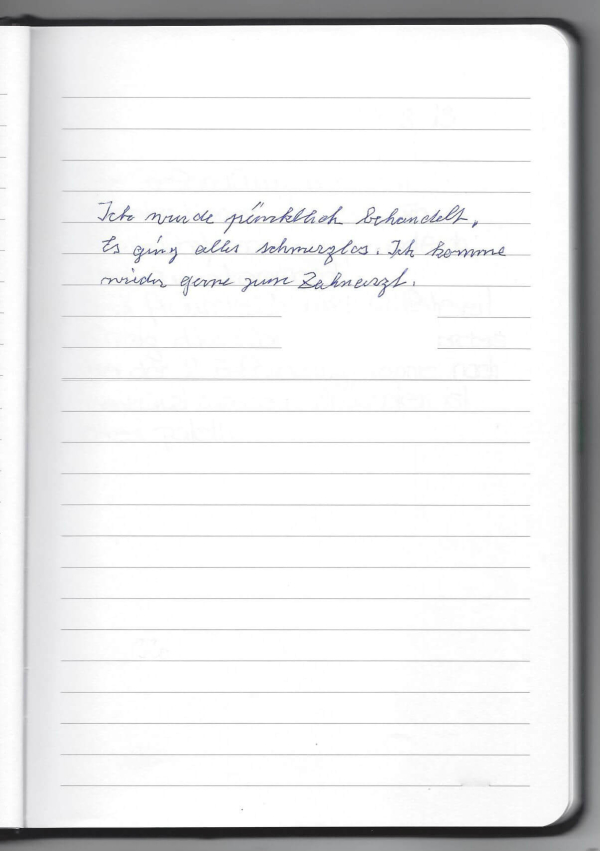 Ich wurde pünktlich behandelt,
Es ging alles schmerzlos. Ich komme
wieder gerne zum Zahnarzt.